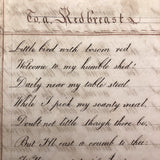 To a Redbreast
Little bird with bosom red
Welcome to my humble shed;
Daily near my table steal
While I pick my scanty meal,
Doubt not little though there be,
But I'll cast a crumb to thee